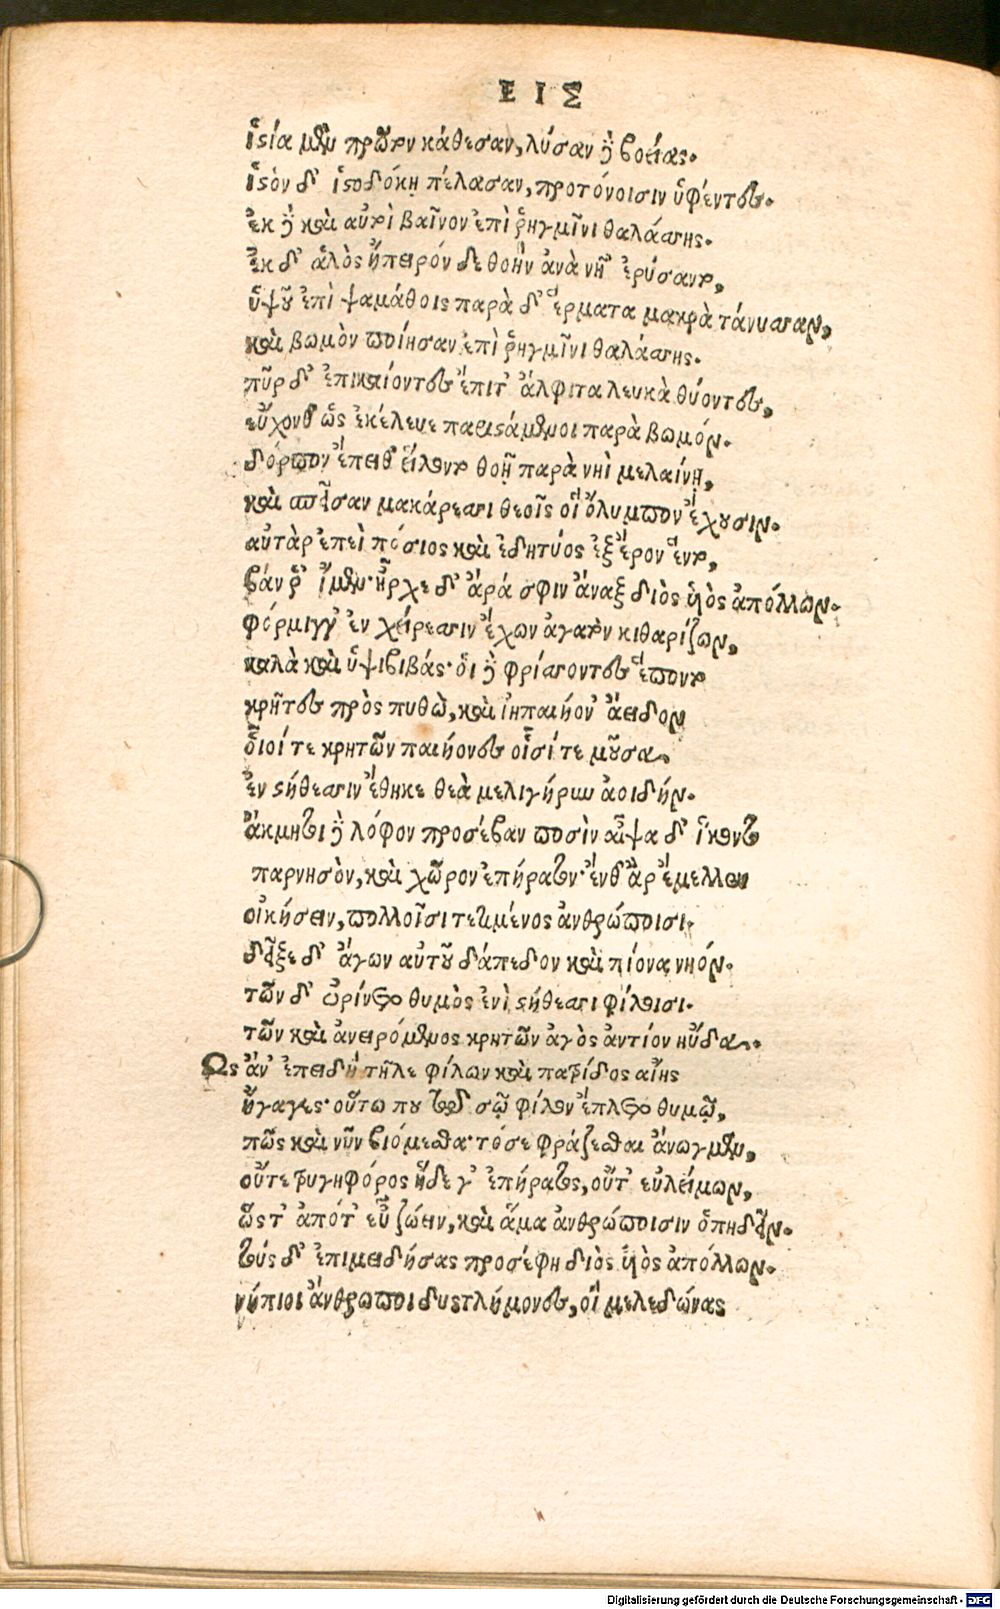 ΕΙΣ
ἱστία μὲν πρῶτον κάθεσαν, λύσαν δὲ βοείας.
ἱστὸν δ' ἱστοδόκῃ πέλασαν, προτόνοισιν ὑφέντες.
ἐκ δὲ καὶ αὐτοὶ βαῖνον ἐπὶ ῥηγμῖνι θαλάσσης.
ἐκ δ' ἁλὸς ἤπειρόν δε θοὴν ἀνὰ νῆ' ἐρύσαντο,
ὑψοῦ ἐπὶ ψαμάθοις παρὰ δ' ἕρματα μακρὰ τάνυσσαν,
καὶ βωμὸν ποίησαν ἐπὶ ῥηγμῖνι θαλάσσης.
πῦρ δ' ἐπικαίοντες ἐπί τ' ἄλφιτα λευκὰ θύοντες,
εὔχονθ' ὡς ἐκέλευε παριστάμενοι παρὰ βωμόν.
δόρπον ἔπειθ' εἵλοντο θοῇ παρὰ νηὶ μελαίνῃ,
καὶ σπεῖσαν μακάρεσσι θεοῖς οἳ ὄλυμπον ἔχουσιν.
αὐτὰρ ἐπεὶ πόσιος καὶ ἐδητύος ἐξ ἔρον ἕντο,
βάν ῥ' ἴμεν· ἦρχε δ' ἄρά σφιν ἄναξ διὸς υἱὸς ἀπόλλων.
φόρμιγγ' ἐν χείρεσσιν ἔχων ἀγατὸν κιθαρίζων,
καλὰ καὶ ὕψι βιβάς· ὁι δὲ φρίσσοντες ἕποντο
κρῆτες πρὸς πυθὼ, καὶ ἰηπαιήον' ἄειδον
ὃιοί τε κρητῶν παιήονες οἷσί τε μοῦσα.
ἐν στήθεσσιν ἔθηκε θεὰ μελιγήρυν ἀοιδήν.
ἄκμητοι δὲ λόφον προσέβαν ποσὶν αἶψα δ' ἵκοντο
παρνησὸν, καὶ χῶρον ἐπήρατον· ἔνθ' ἂρ ἔμελλεν
οἰκήσειν, πολλοῖσι τετιμένος ἀνθρώποισι.
δεῖξε δ' ἄγων αὐτοῦ δάπεδον καὶ πίονα νηόν.
τῶν δ' ὠρίνετο θυμὸς ἐνὶ στήθεσσι φίλοισι.
τῶν καὶ ἀνειρόμενος κρητῶν ἀγὸς ἀντίον ηὔδα.
Ως ἄν' ἐπειδὴ τῆλε φίλων καὶ πατρίδος αἴης
ἤγαγες· οὕτω που τῶ σῷ φίλον ἔπλετο θυμῷ,
πῶς καὶ νῦν βιόμεσθα· τόσε φράζεσθαι ἄνωγμεν,
οὔτε τρυγηφόρος ἥδε γ' ἐπήρατος, οὔτ' εὐλείμων,
ὥστ' ἀπό τ' εὖ ζώειν, καὶ ἅμα ἀνθρώποισιν ὀπηδεῖν.
τοὺς δ' ἐπιμειδήσας προσέφη διὸς υἱὸς ἀπόλλων.
νήπιοι ἄνθρωποι δυστλήμονες, οἳ μελεδώνας
Digitalisierung gefördert durch die Deutsche Forschungsgemeinschaft - DFG